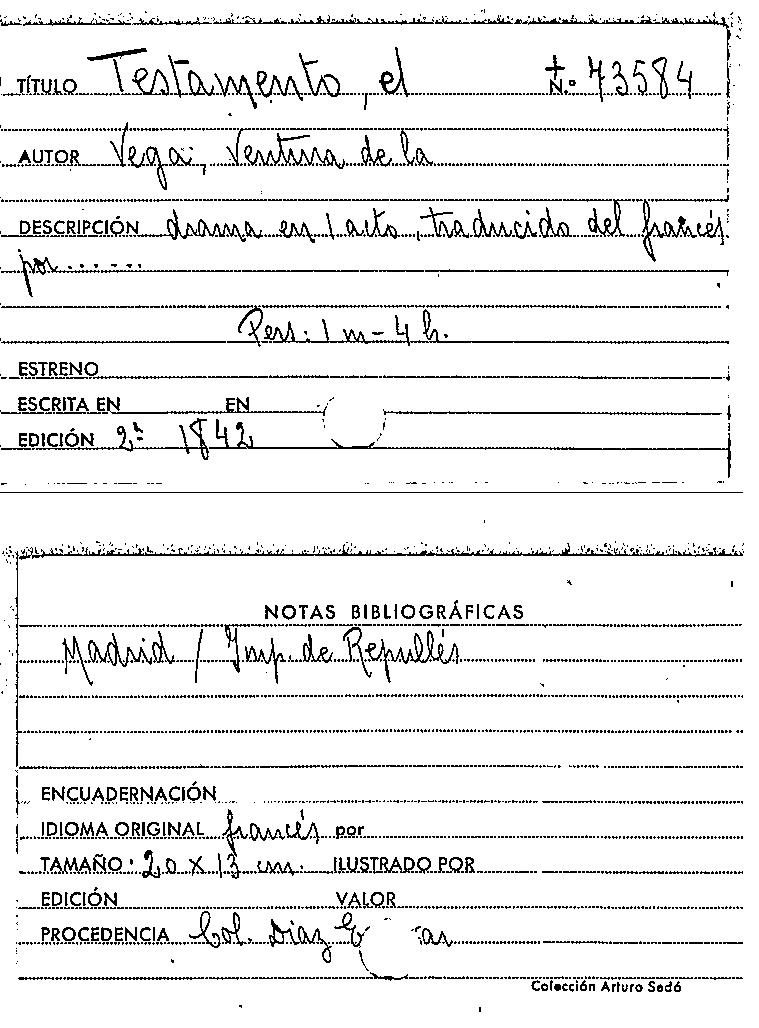 TÍTULO Testamento, el + N.º 43584
AUTOR Vega, Ventura de la
DESCRIPCIÓN drama en 1 acto, traducido del francés
por ......
Pers: 1 m - 4 h.
ESTRENO
ESCRITA EN EN
EDICIÓN 2ª 1842
NOTAS BIBLIOGRÁFICAS
Madrid / Imp. de Repullés
ENCUADERNACIÓN
IDIOMA ORIGINAL francés por
TAMAÑO 20 x 13 cm. ILUSTRADO POR
EDICIÓN VALOR
PROCEDENCIA Col. Díaz
Colección Arturo Sedó